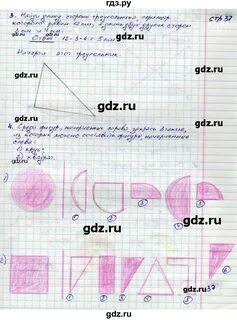 гдз.ру
стр 37
3. Найди длину стороны треугольника, периметр
которого равен 12 см, а длины двух других сторон
3 см и 4 см.
Ответ 12-3-4 = 5 см
Начерти этот треугольник.
4. Среди фигур, начерченных справа, закрась те,
из которых можно составить фигуры, начерченные
слева:
а) круг;
б) квадрат.
а)
б)
37
гдз.ру